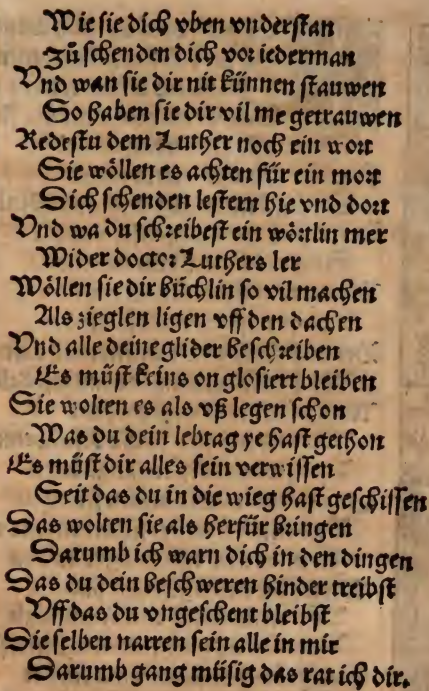 Wie sie dich vben vnderstan
Zů schenden dich vor iederman
Vnd wan sie dir nit künnen stauwen
So haben sie dir vil me getrauwen
Redestu dem Luther noch ein wort
Sie wöllen es achten für ein mort
Dich schenden lestern hie vnd dort
Vnd wa du schreibest ein wörtlin mer
Wider doctor Luthers ler
Wöllen sie dir büchlin so vil machen
Als zieglen ligen vff den dachen
Vnd alle deine glider beschreiben
Es müst keins on glosiert bleiben
Sie wolten es als vß legen schon
Was du dein lebtag ye hast gethon
Es müst dir alles sein verwissen
Seit das du in die wieg hast geschissen
Das wolten sie als herfür bringen
Darumb ich warn dich in den dingen
Das du dein beschweren hinder treibst
Vff das du vngeschent bleibst
Die selben narren sein alle in mir
Darumb gang müsig das rat ich dir.